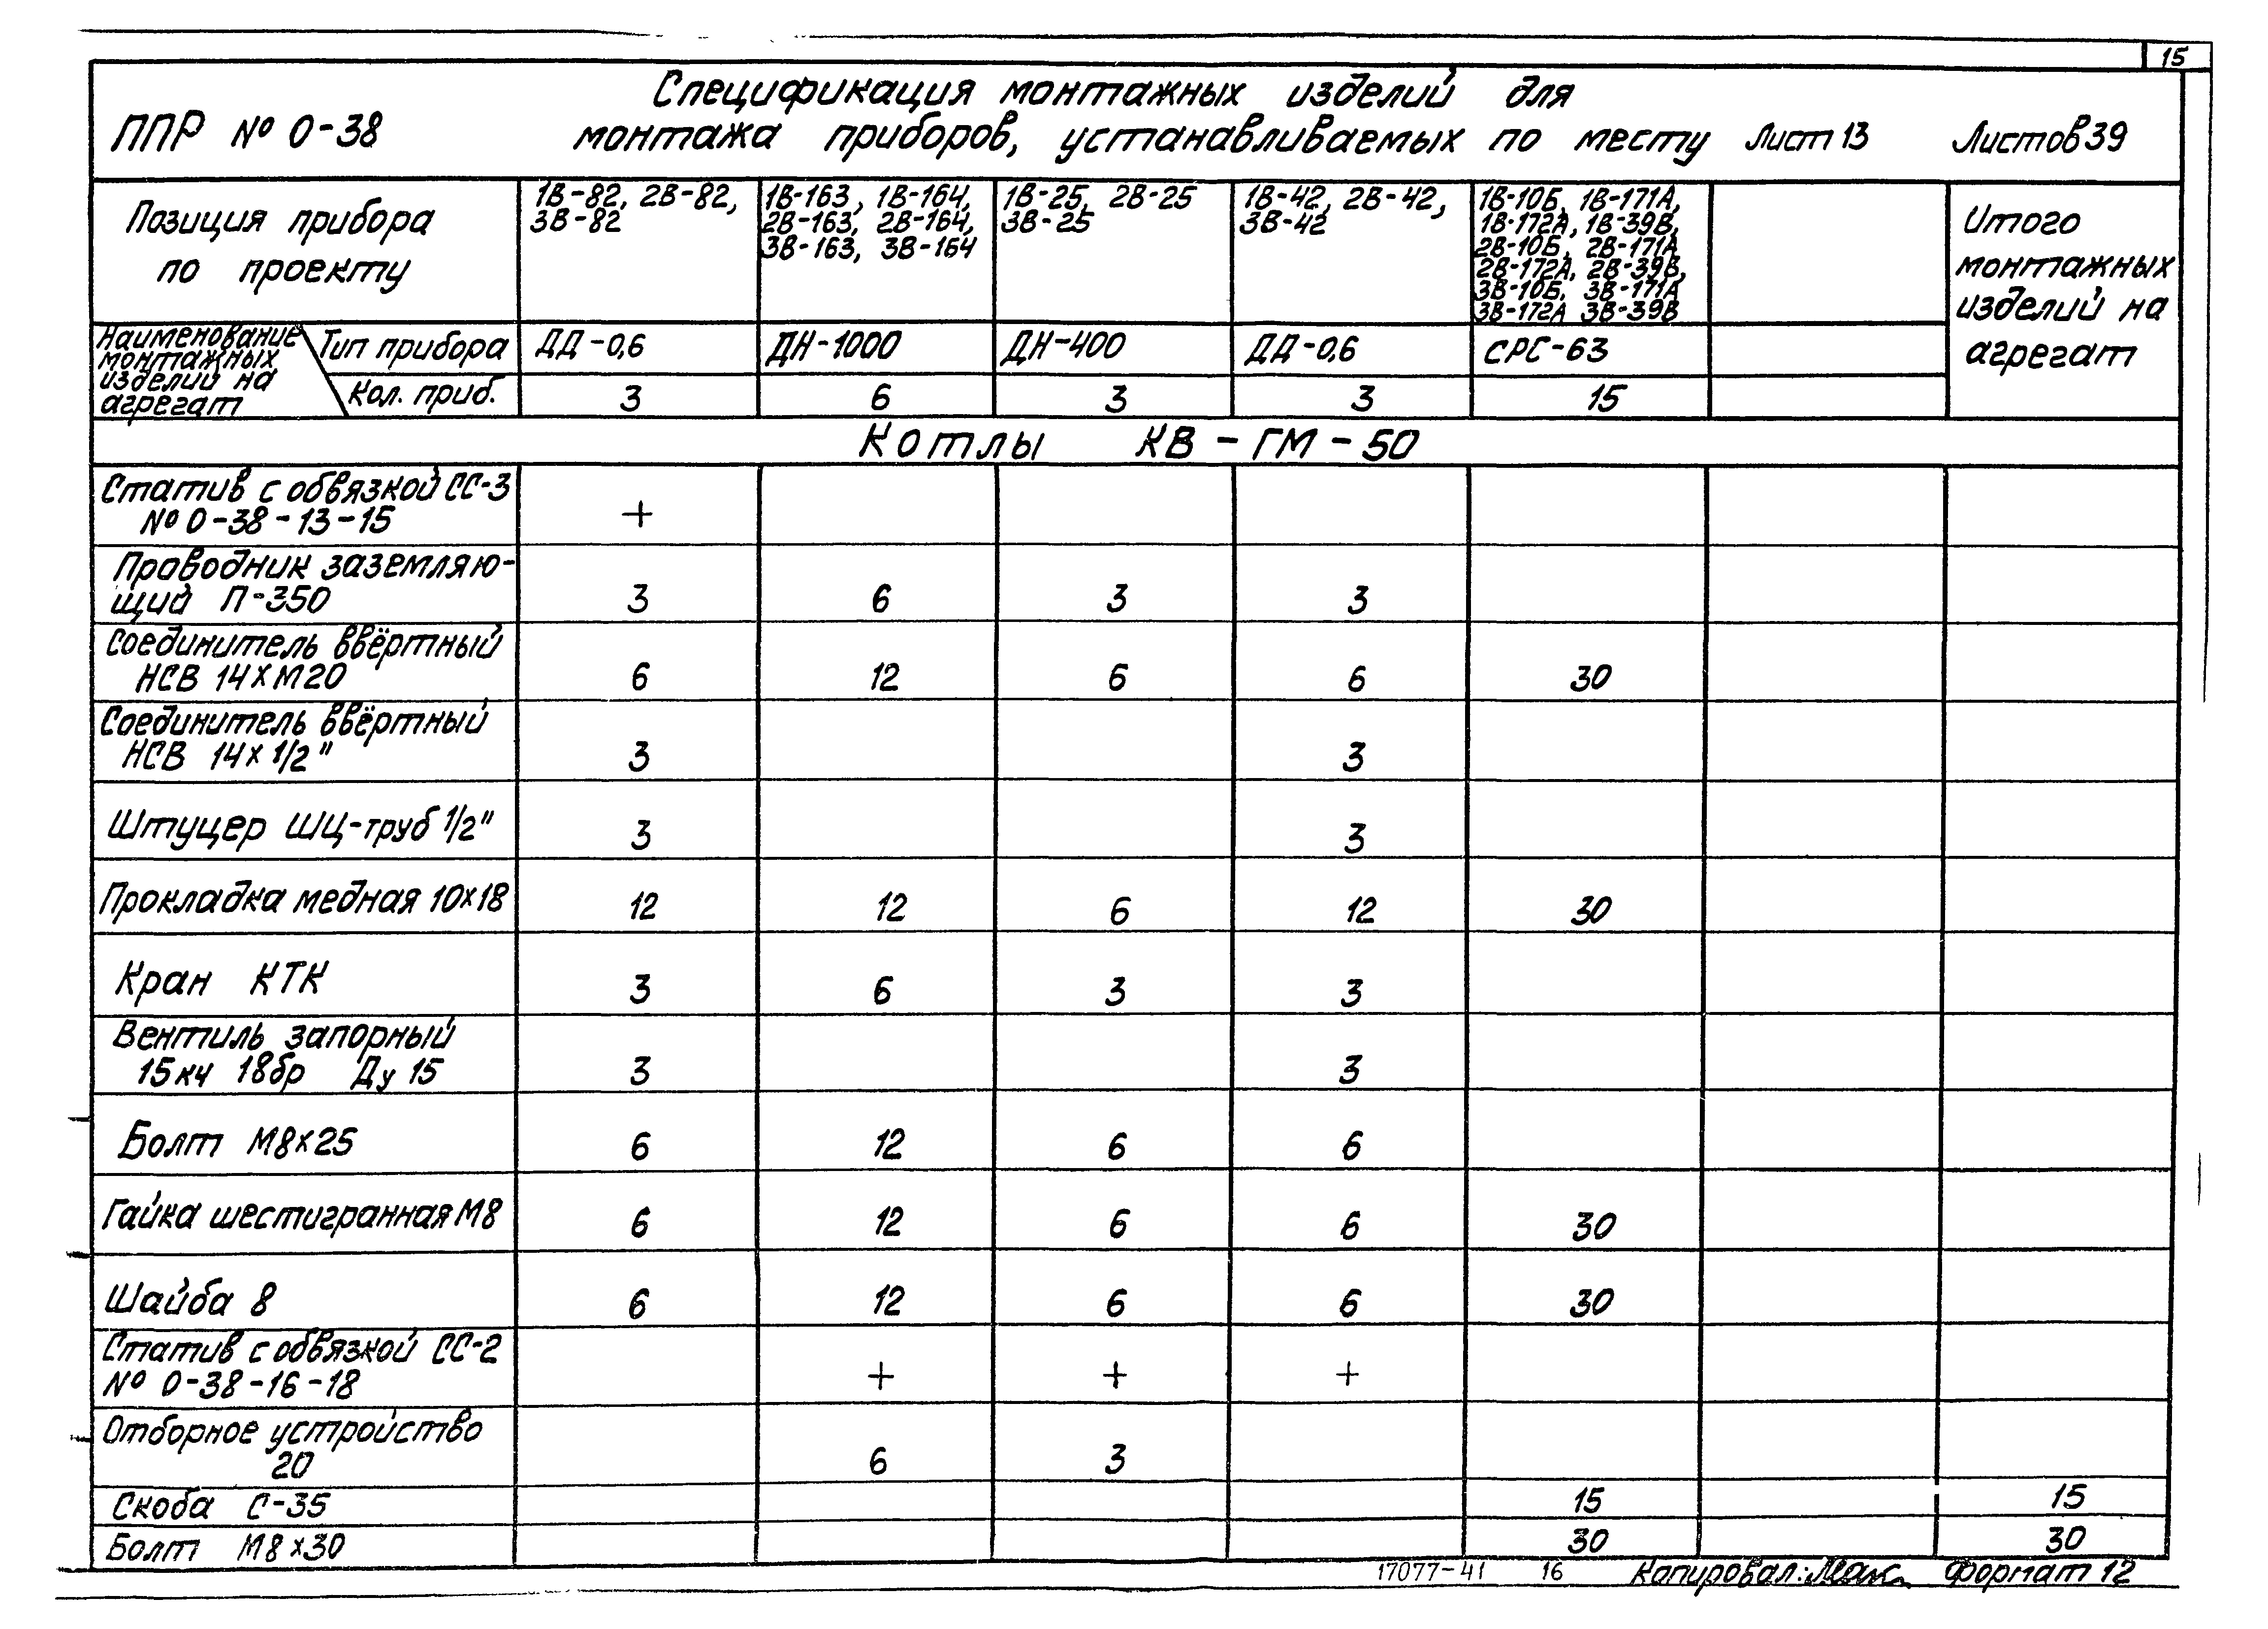 15
Спецификация монтажных изделий для
ППР № 0-38 монтажа приборов, устанавливаемых по месту Лист 13 Листов 39
Позиция прибора
по проекту
1В-82, 2В-82,
3В-82
1В-163, 1В-164,
2В-163, 2В-164,
3В-163, 3В-164
1В-25, 2В-25
3В-25
1В-42, 2В-42,
3В-42
1В-10Б, 1В-171А,
1В-172А, 1В-39В,
2В-10Б, 2В-171А
2В-172А, 2В-39В,
3В-10Б, 3В-171А
3В-172А 3В-39В
Итого
монтажных
изделий на
агрегат
Наименование
монтажных
изделий на
агрегат
Тип прибора ДД-0,6 ДН-1000 ДН-400 ДД-0,6 СРС-63
Кол. приб. 3 6 3 3 15
Котлы КВ-ГМ-50
Статив с обвязкой СС-3
№ 0-38-13-15 +
Проводник заземляю-
щий П-350 3 6 3 3
Соединитель ввёртный
НСВ 14хМ20 6 12 6 6 30
Соединитель ввёртный
НСВ 14х1/2" 3 3
Штуцер ШЦ-труб 1/2" 3 3
Прокладка медная 10х18 12 12 6 12 30
Кран КТК 3 6 3 3
Вентиль запорный
15кч 18бр Ду 15 3 3
Болт М8х25 6 12 6 6
Гайка шестигранная М8 6 12 6 6 30
Шайба 8 6 12 6 6 30
Статив с обвязкой СС-2
№ 0-38-16-18 + + +
Отборное устройство
20 6 3
Скоба С-35 15 15
Болт М8х30 30 30
17077-41 16 Копировал: Формат 12